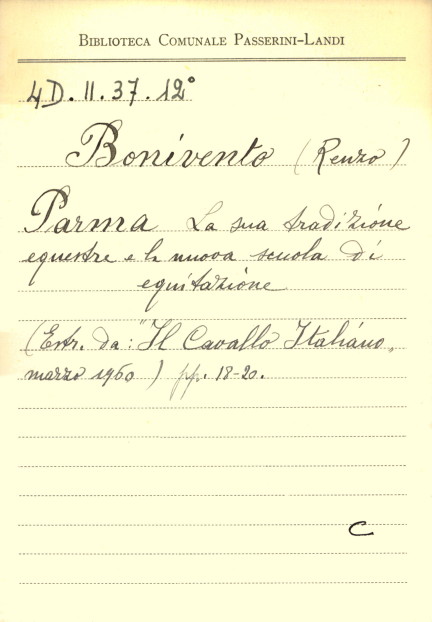 BIBLIOTECA COMUNALE PASSERINI-LANDI
4D. II. 37. 12°
Bonivento (Renzo)
Parma La sua tradizione
equestre e la nuova scuola di
equitazione
(Estr. da: "Il Cavallo Italiano,
marzo 1960) pp. 18-20.
C